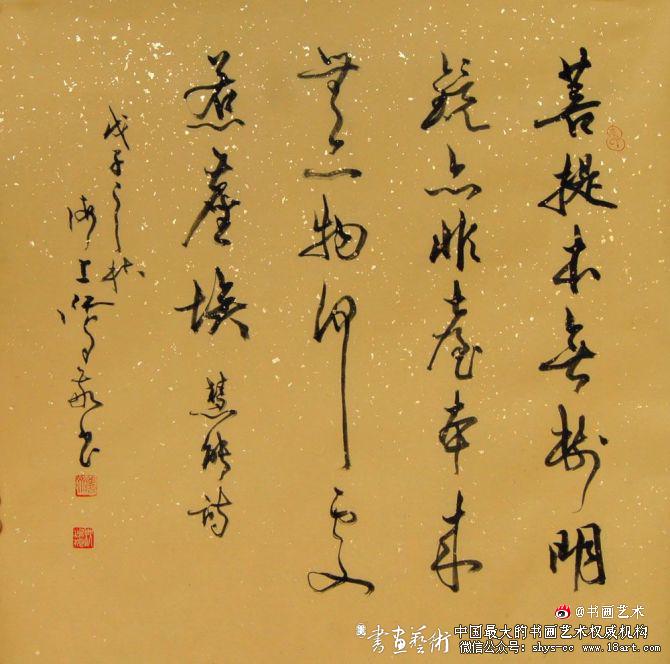 菩提本無樹明
鏡亦非臺本来
無一物何處
惹塵埃 慧能詩
戊子之秋
海上 書
@书画艺术
書画藝術
中国最大的书画艺术权威机构
微信公众号: shys-cc www.18art.com